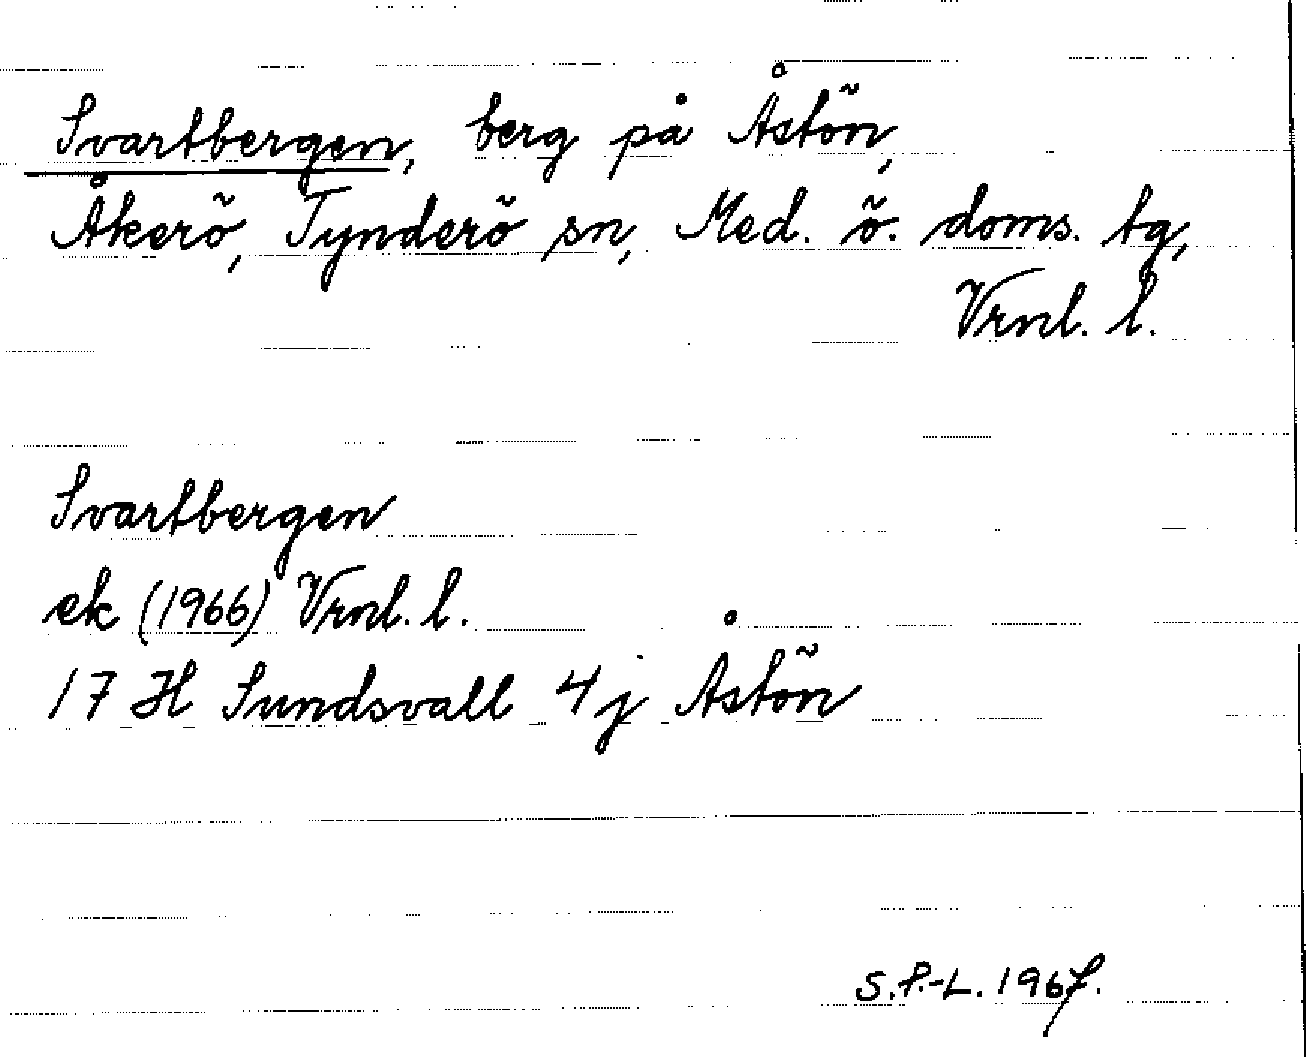 Svartbergen, berg på Åstön,
Åkerö, Tynderö sn, Med. ö. doms. tg,
Vrnl. l.
Svartbergen
ek (1966) Vrnl. l.
17 H Sundsvall 4j Åstön
S.P.-L. 1967.